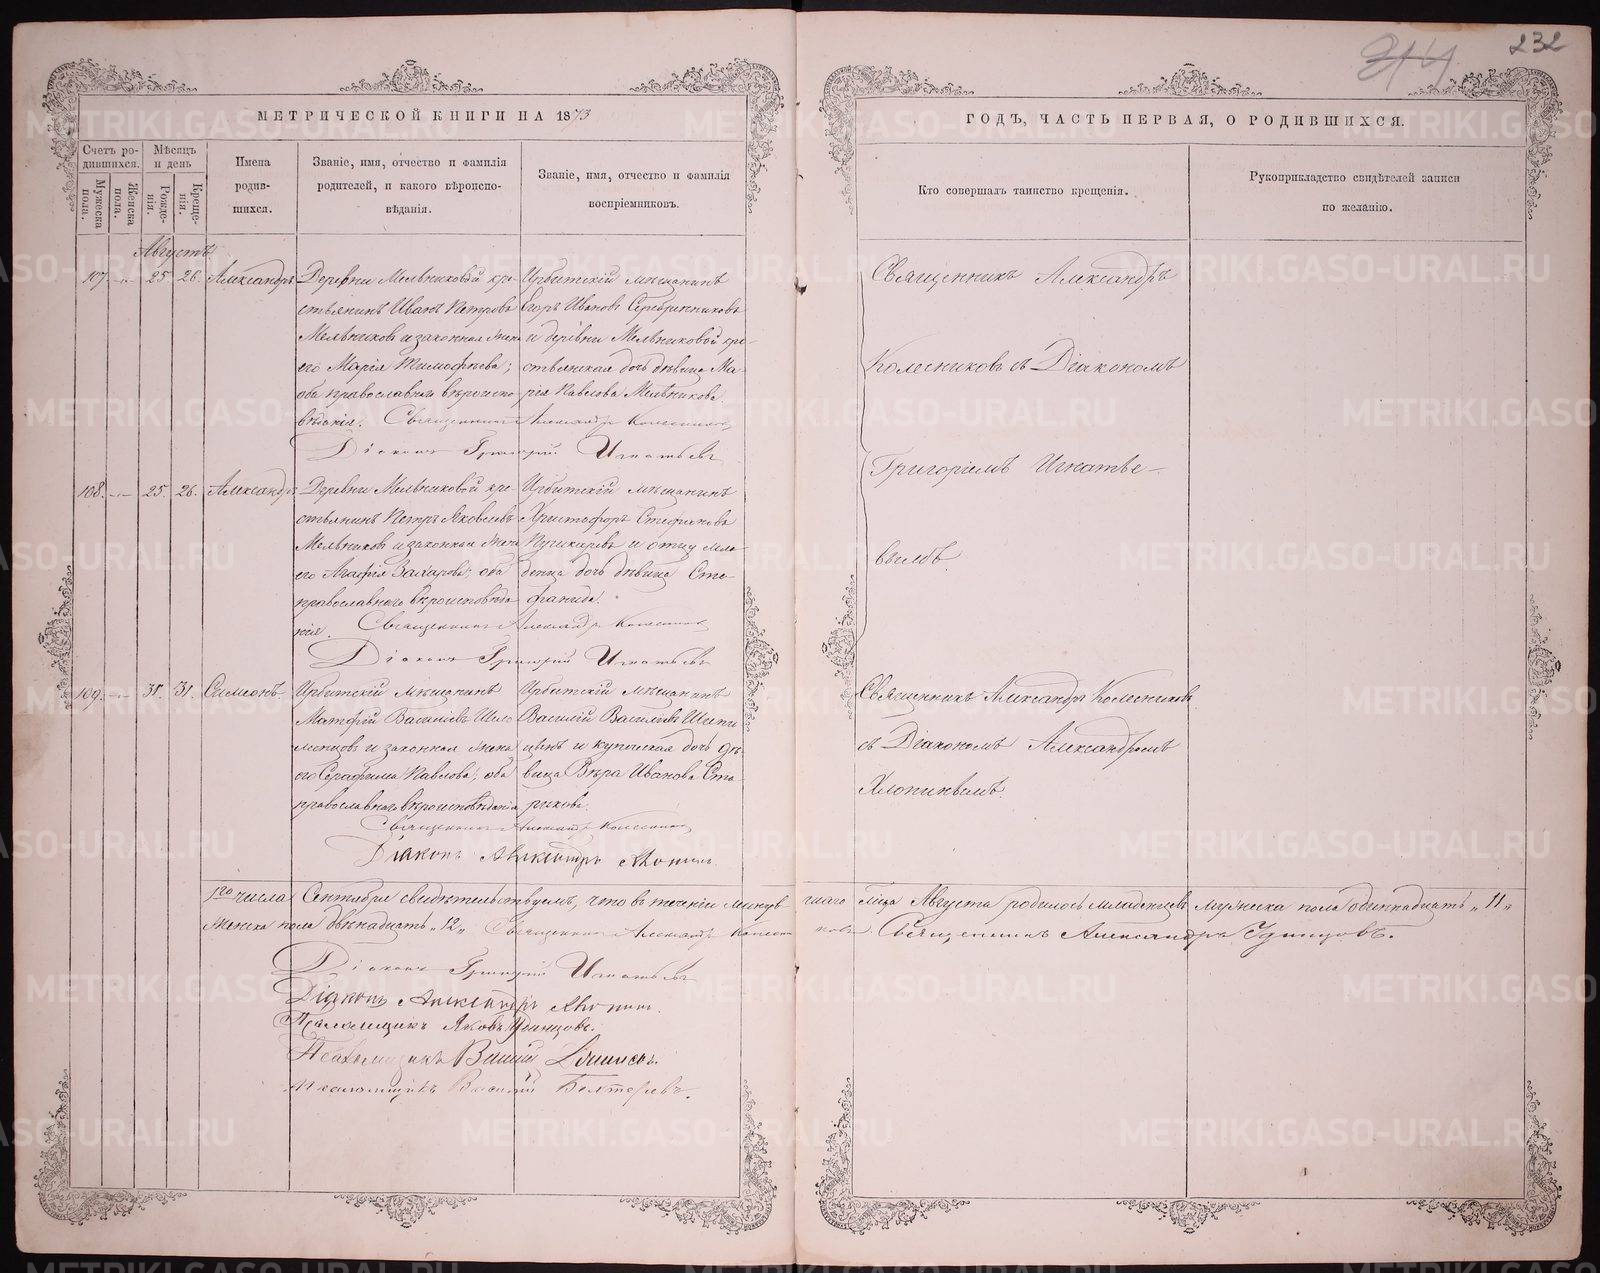 232
МЕТРИЧЕСКОЙ КНИГИ НА 1873
ГОДЪ, ЧАСТЬ ПЕРВАЯ, О РОДИВШИХСЯ.
Счетъ ро-
дившихся.
Мужеска пола.
Женска пола.
Мѣсяцъ
и день
Рожде-
нія.
Креще-
нія.
Имена
родив-
шихся.
Званіе, имя, отчество и фамилія
родителей, и какого вѣроиспо-
вѣданія.
Званіе, имя, отчество и фамилія
воспріемниковъ.
Кто совершалъ таинство крещенія.
Рукоприкладство свидѣтелей записи
по желанію.
Августъ
107. 25 26. Александръ
Деревни Мельниковой кре-
стьянинъ Иванъ Петровъ
Мельниковъ и законная жена
его Марія Тимофѣева;
оба православнаго вѣроиспо-
вѣданія. Священникъ Александръ Колесниковъ
Діаконъ Григорій Игнатьевъ
Ирбитскій мѣщанинъ
Егоръ Ивановъ Серебрянниковъ
и деревни Мельниковой кре-
стьянская дочь дѣвица Ма-
рія Павлова Мельникова.
Священникъ Александръ
Колесниковъ съ Діакономъ
Григоріемъ Игнатье-
вымъ.
108. 25. 26. Александръ
Деревни Мельниковой кре-
стьянинъ Петръ Яковлевъ
Мельниковъ и законная жена
его Агафія Захарова; оба
православнаго вѣроисповѣда
нія. Священникъ Александръ Колесниковъ
Діаконъ Григорій Игнатьевъ
Ирбитскій мѣщанинъ
Христофоръ Стефановъ
и отцу мла-
денца дочь дѣвица Сте-
фанида.
109. 31. 31. Симеонъ
Ирбитскій мѣщанинъ
Матфій Василіевъ Шело
менцовъ и законная жена
его Серафима Павлова; оба
православнаго вѣроисповѣданія
Священникъ Александръ Колесниковъ
Діаконъ Александръ
Ирбитскій мѣщанинъ
Василій Василіевъ Шипи
цынъ и купеческая дочь дѣ-
вица Вѣра Иванова Ста-
рикова.
Священникъ Александръ Колесниковъ
съ Діакономъ Александромъ
Хлопинымъ.
1го числа Сентября свидѣтельствуемъ, что въ теченіи минув- шаго мѣсца Августа родилось младенцевъ мужеска пола одиннадцать „11„
женска пола двѣнадцать „12„ Священникъ Александръ Колесниковъ. Священникъ Александръ Удинцовъ.
Діаконъ Григорій Игнатьевъ
Діаконъ Александръ
Псаломщикъ Яковъ Удинцовъ.
Псаломщикъ
Псаломщикъ Василій Бехтеревъ.
METRIKI.GASO-URAL.RU